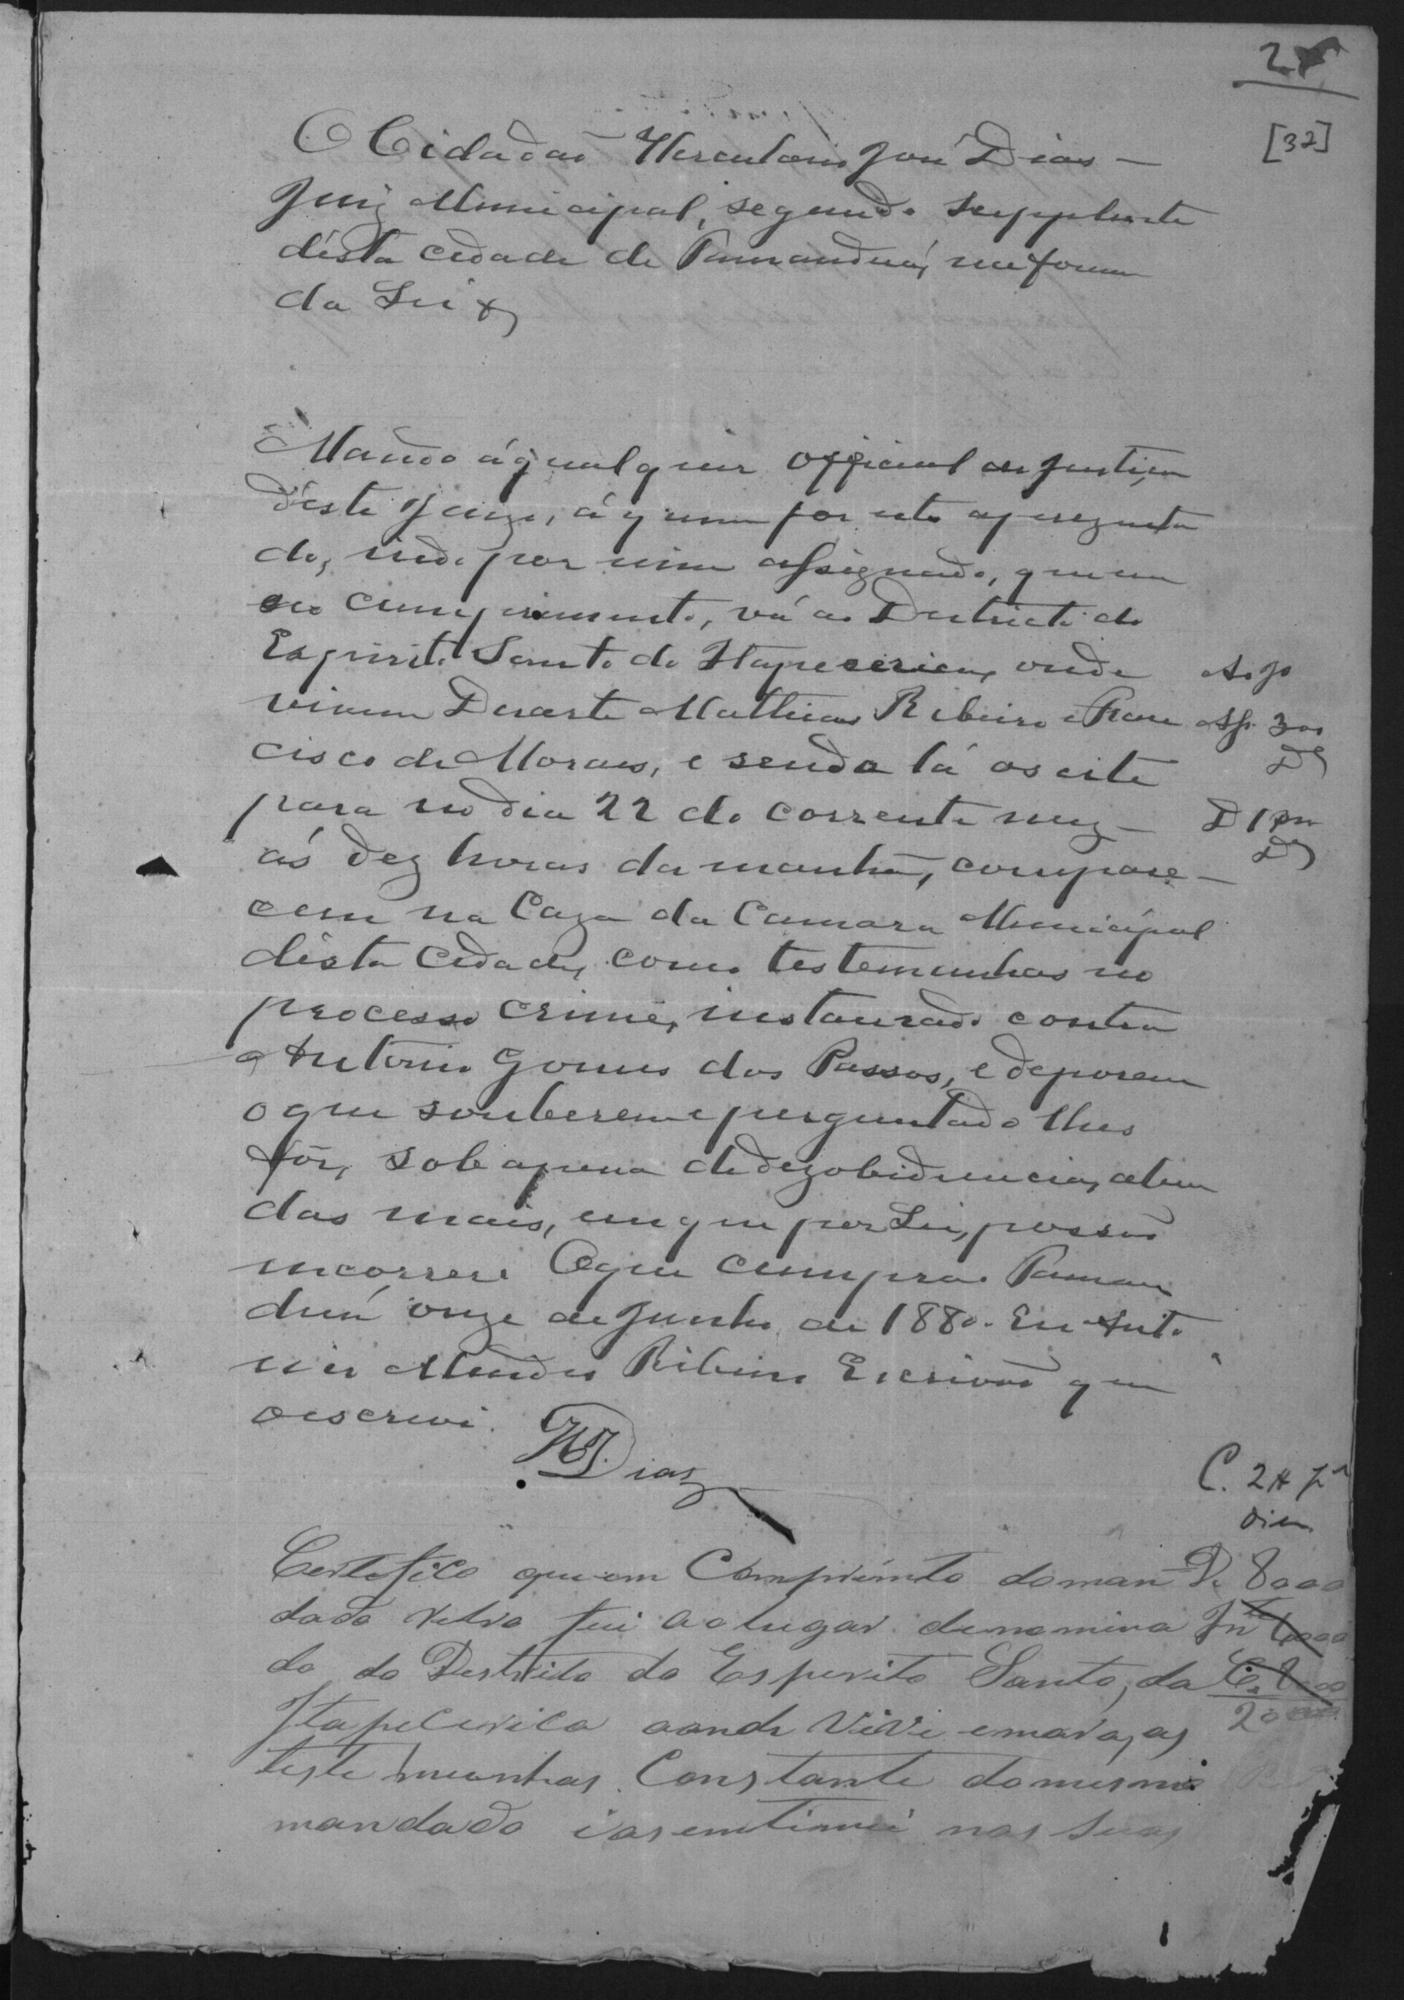 27
[32]
O Cidadão Herculano José Dias
Juiz Municipal, segundo supplente
désta cidade de Tamanduá, na forma
da Lei &
Mando á qualquer official de Justiça
déste Juizo, á quem for este aprezenta
do, indo por mim assignado, que em
seo cumprimento, vá ao Destricto do
Espirito Santo do Itapecerica, onde
vivem Duarte Mathias Ribeiro e Fran
cisco de Moraes, e sendo lá os cite
para no dia 22 do corrente mez
ás dez horas da manhã, compare-
cem na Caza da Camara Municipal
désta cidade, como testemunhas no
processo crime, instaurado contra
Antonio Gomes dos Passos, e deporem
o que souberem e perguntado lhes
fôr, sob a pena de dezobidiencia, alem
das mais, em que por Lei, possão
incorrer. O que cumpra. Taman
duá onze de Junho de 1880. Eu Anto
nio Mendes Ribeiro Escrivão que
o escrevi.
HJDias
A. J.
Ass. 300
D 1
C. 24
Certefico que em Comprimento do man
dado retro fui ao lugar denomina
do do Destrito do Esperito Santo, da
Itapecerica aonde vivi e mora, as
testemunhas Constante do mesmo
mandado i as entimei nas suas
8000